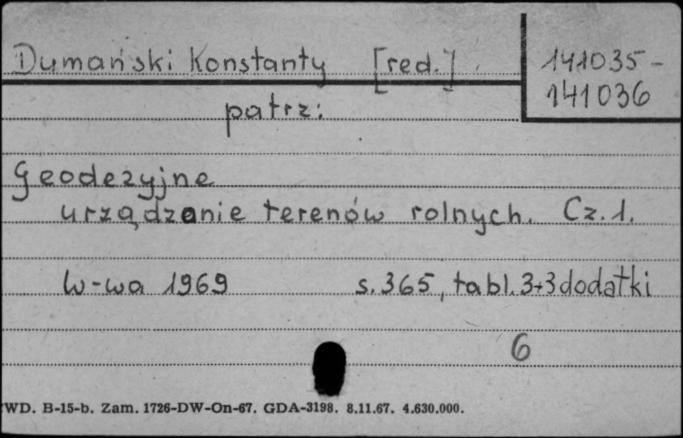 Dumański Konstanty [red.] 141035-
141036
patrz:
Geodezyjne
urządzanie terenów rolnych. Cz. 1.
W-wa 1969 s. 365, tabl. 3+3 dodatki
6
WD. B-15-b. Zam. 1726-DW-On-67. GDA-3198. 8.11.67. 4.630.000.